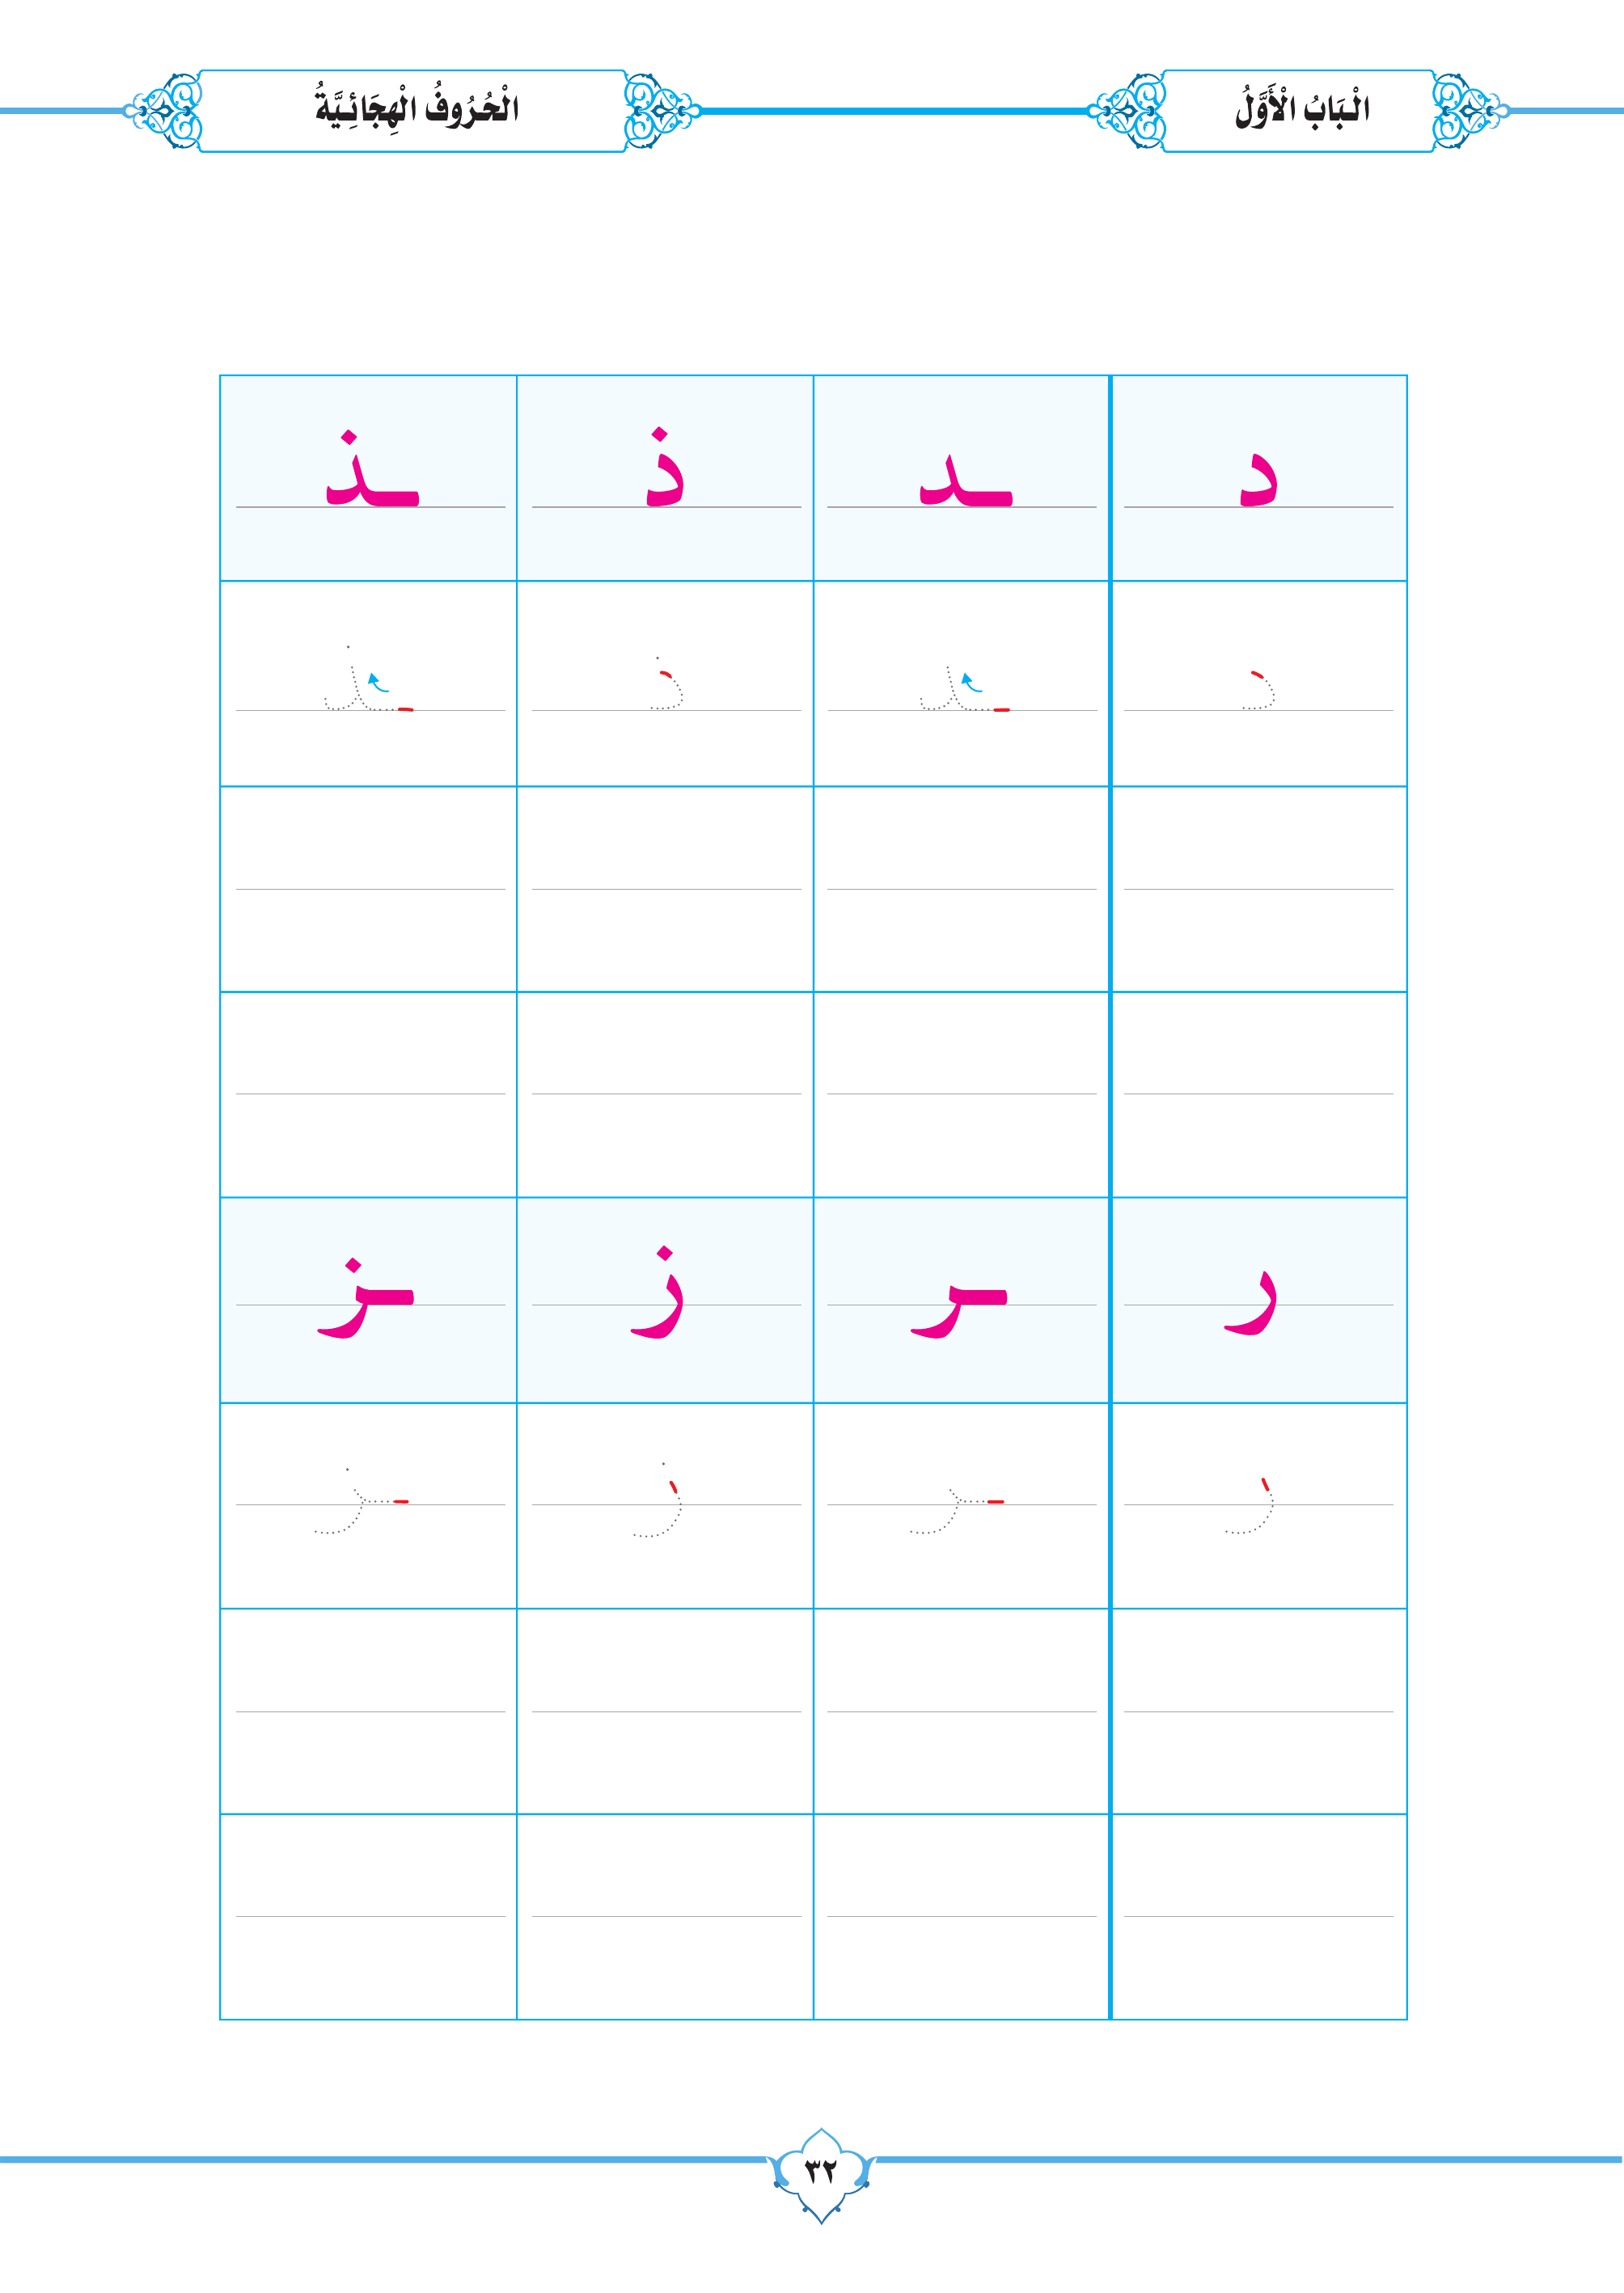 الْبَابُ الْأَوَّلُ
الْحُرُوفُ الْهِجَائِيَّةُ
د ـد ذ ـذ
د ـد ذ ـذ
ر ـر ز ـز
ر ـر ز ـز
٣٢